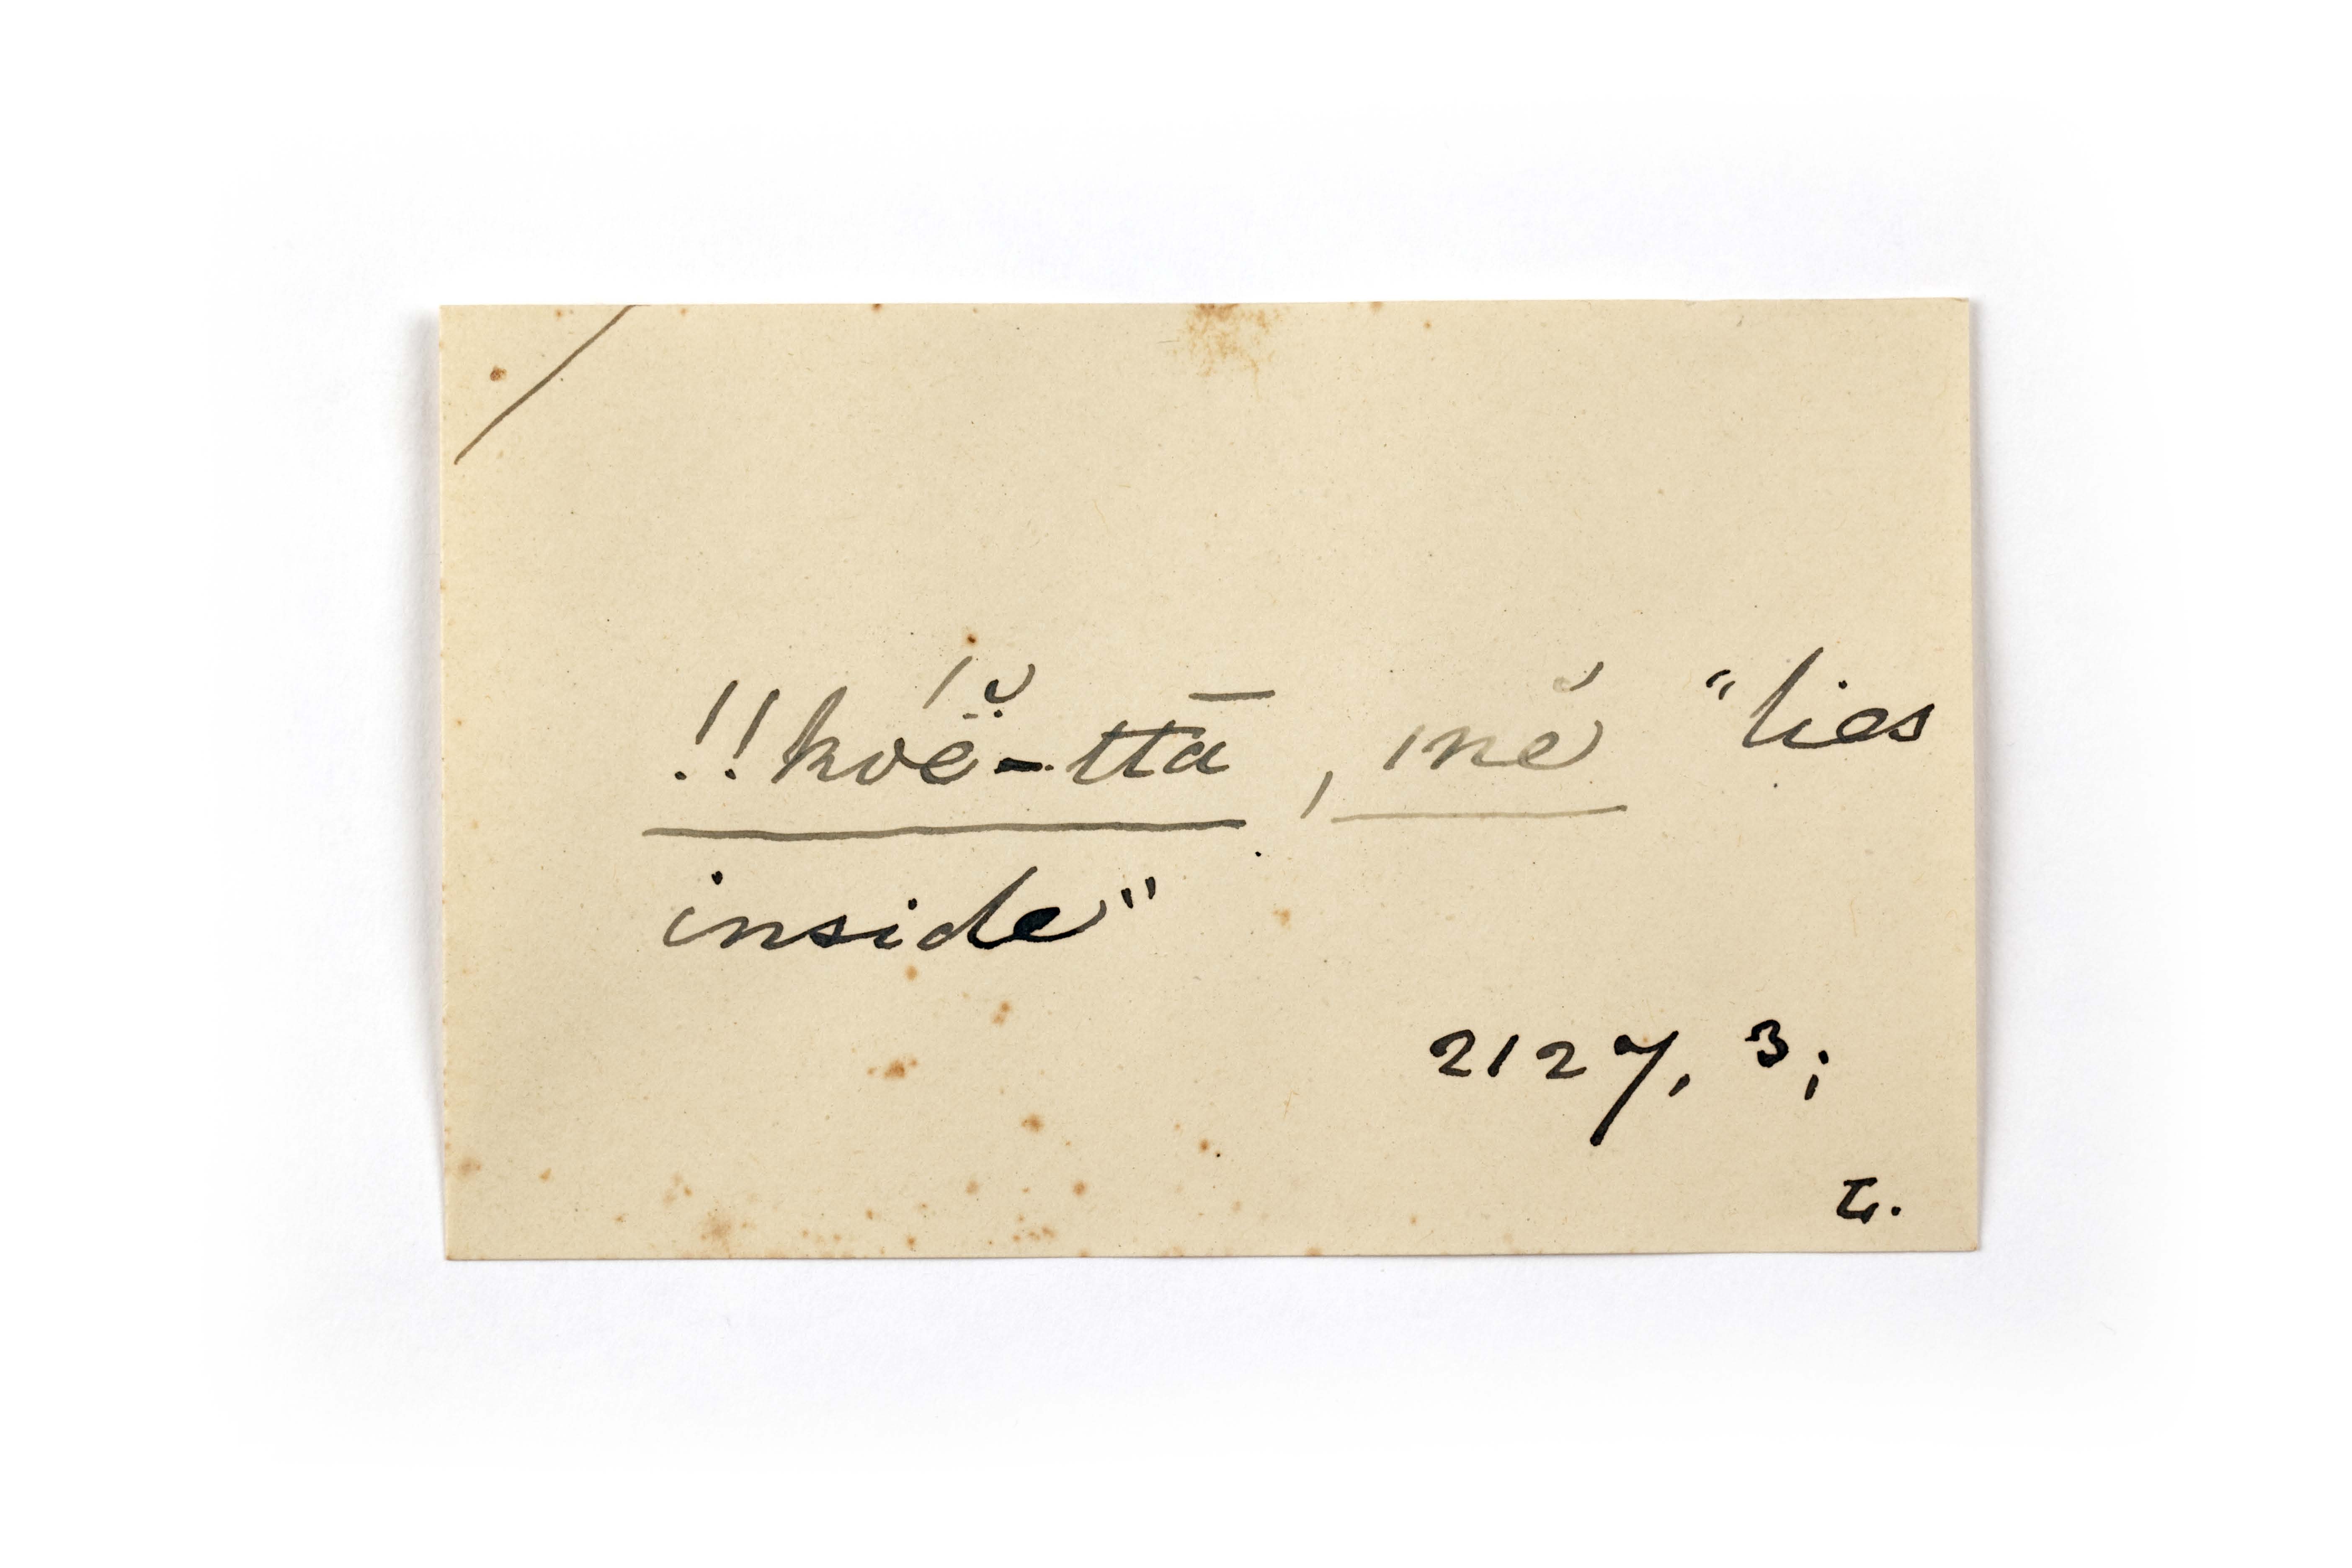 !!kóë̆-ttā, ınĕ "lies
inside"
2127, 3;
L.